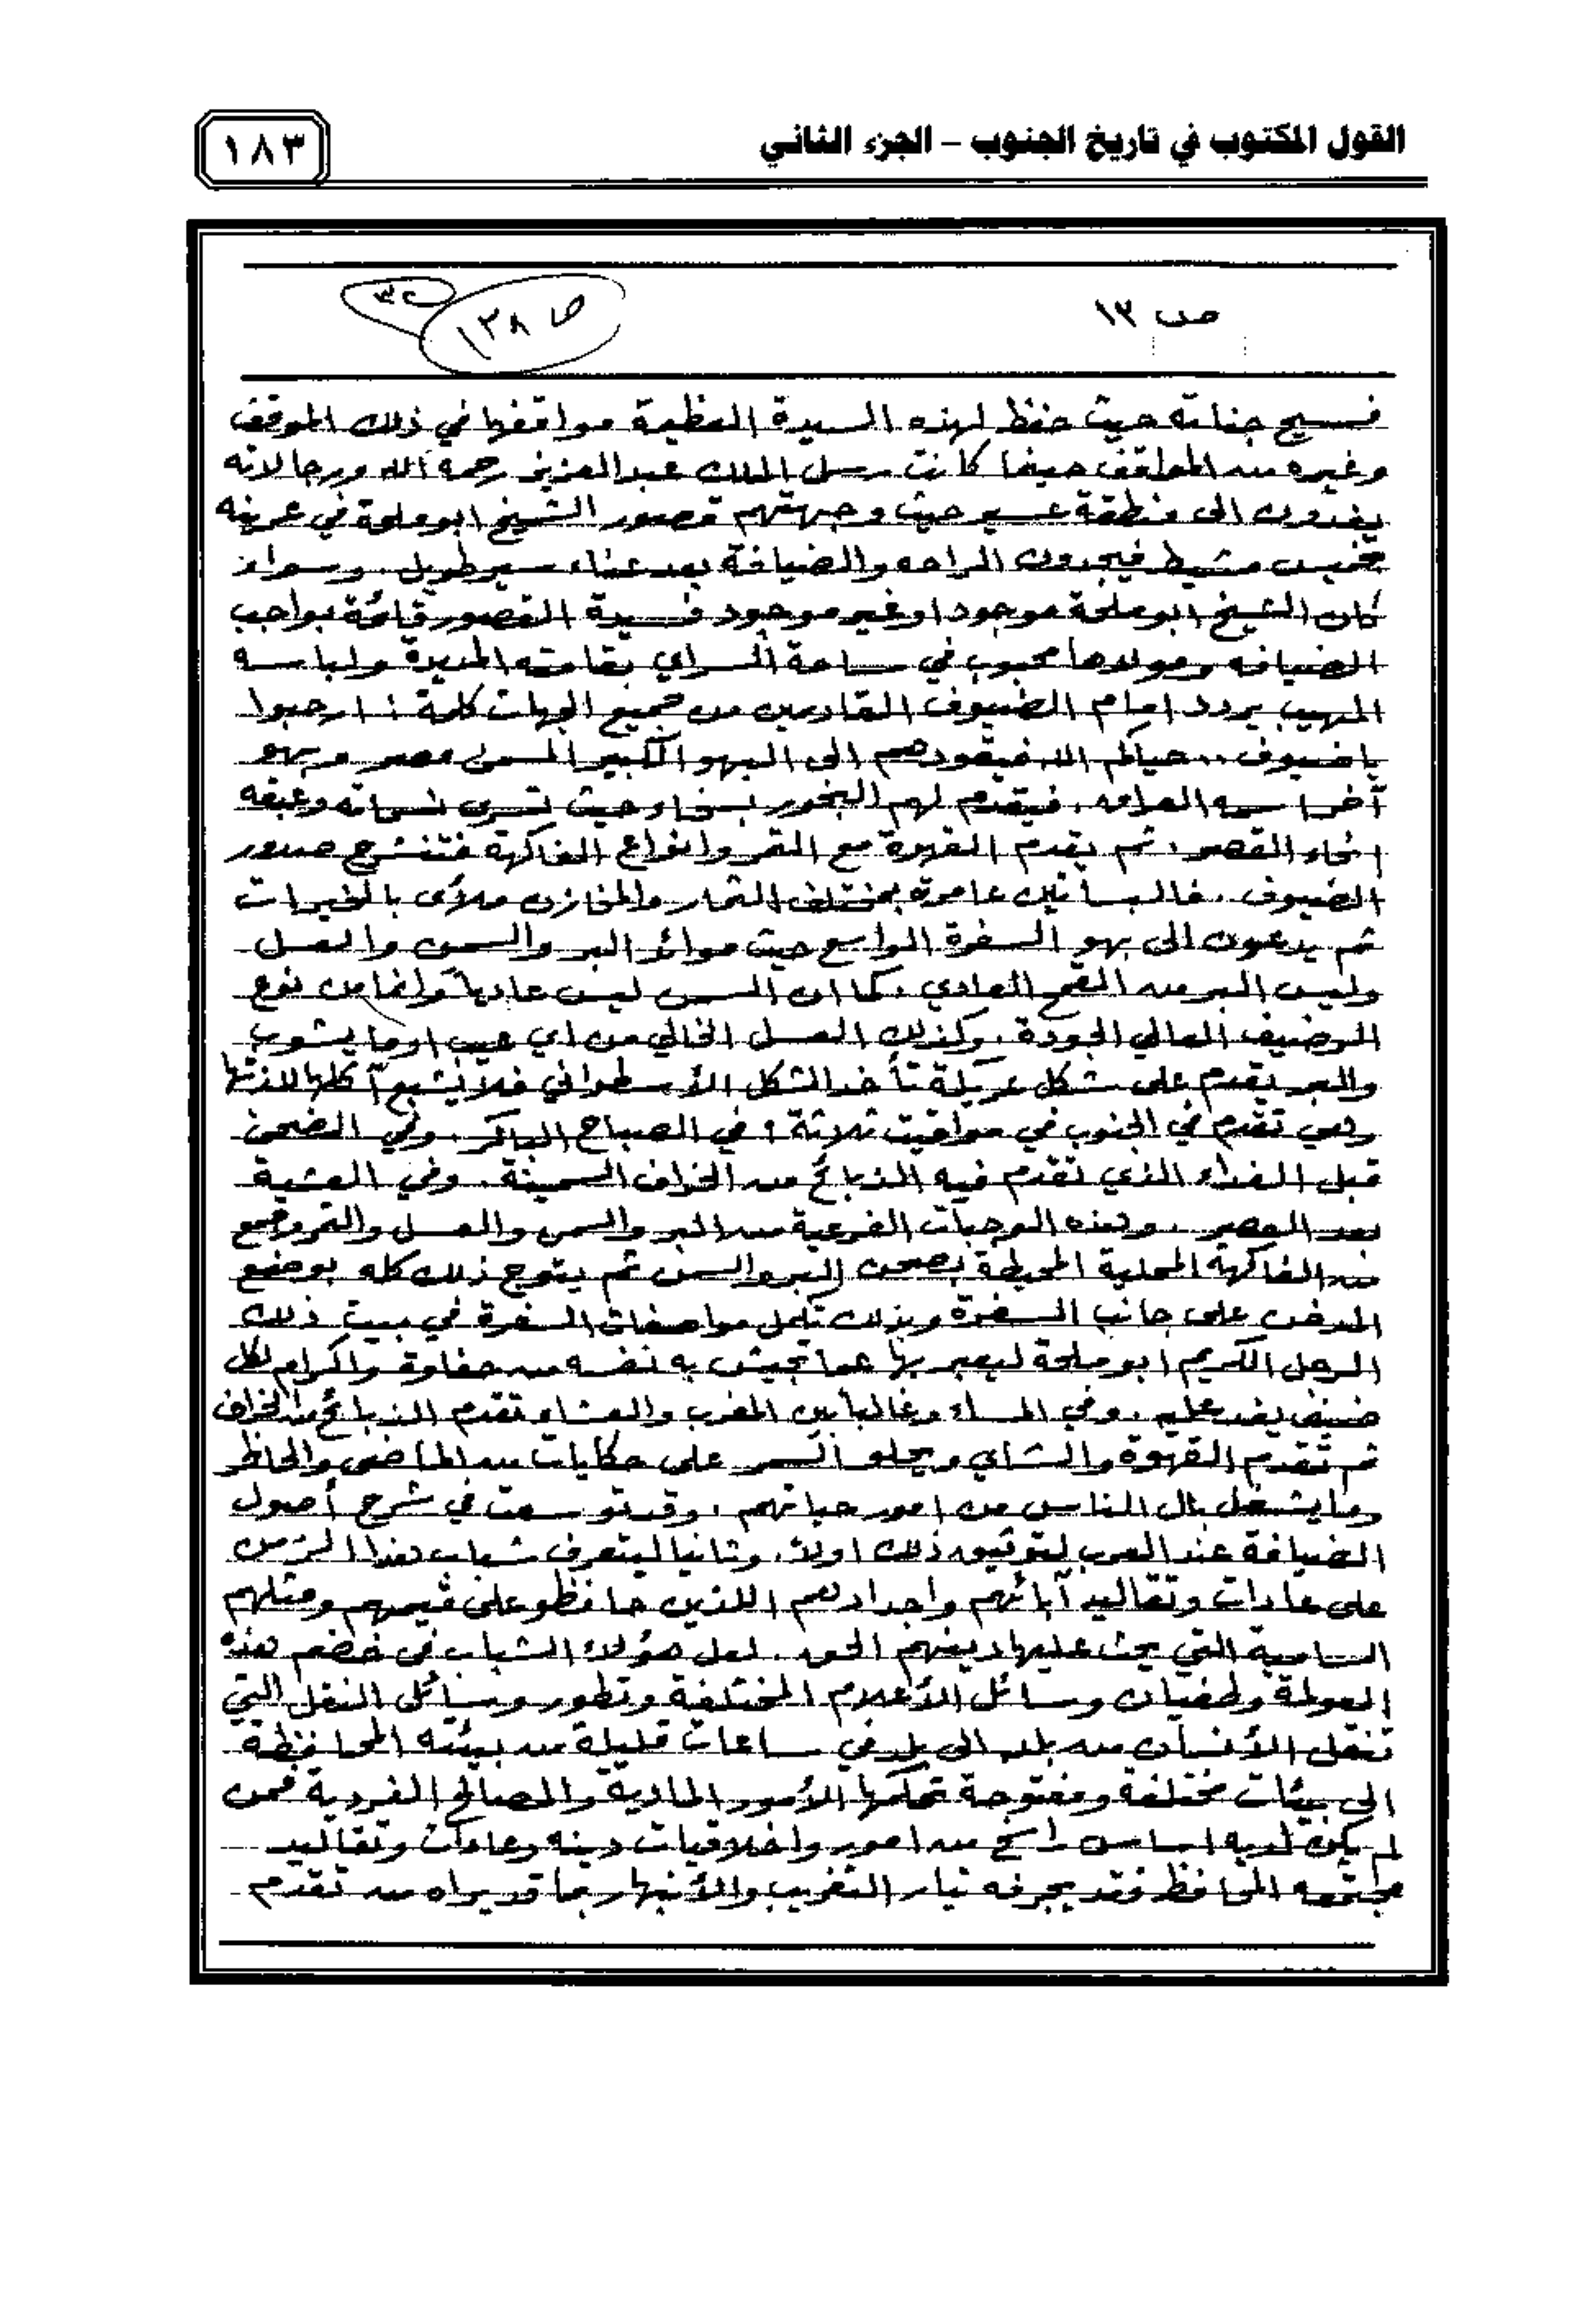 القول المكتوب في تاريخ الجنوب – الجزء الثاني
١٨٣
ص ١٣
ص ١٣٨
فسيح جناته حيث حفظ لهذه السيدة العظيمة مواقفها في ذلك الموقف
وغيره من المواقف حينما كانت رسل الملك عبدالعزيز رحمه الله ورجالاته
يفدون الى منطقة عسير حيث وجهتهم قصور الشيخ ابوملحة في عرينه
بخميس مشيط فيجدون الراحه والضيافة بعد عناء سير طويل. وسواء
كان الشيخ ابوملحة موجود او غير موجود فسيدة القصور قائمة بواجب
الضيافه ومولدها محبوب في ساحة السراي بقامته المديدة ولباسه
المهيب يردد امام الضيوف القادمين من جميع الجهات كلمة : ارحبوا
ياضيوف .. حياكم الله فيقودهم الى البهو الكبير المسمى مصر وبهو
آخر اسمه العرافه. فيقدم لهم البخور بسخاء حيث تسري نسماته وعبقه
انحاء القصر. ثم يقدم القهوة مع التمر وانواع الفاكهة فتنشرح صدور
الضيوف. فالبساتين عامرة بمختلف الثمار والمخازن ملأى بالخيرات
ثم يدعون الى بهو السفرة الواسع حيث موائد البر والسمن والعسل
وليس البر من القمح العادي. كما ان السمن ليس عادياً وانما من نوع
الرضيف العالي الجودة. وكذلك العسل الخالي من اي عيب او ما يشوب
والبر يقدم على شكل عريكة تأخذ الشكل الأسطواني فلا يشبع آكلها للذتها
وهي تقدم في الجنوب في مواقيت ثلاثة ؛ في الصباح الباكر. وفي الضحى
قبل الغداء الذي تقدم فيه الذبائح من الخراف السمينة. وفي العشية
بعد العصر. وهذه الوجبات الفرعية من البر والسمن والعسل والتمر وقمع
من الفاكهة المحلية المحيطة بصحن البر والسمن ثم يتوج ذلك كله بوضع
المرضف على جانب السفرة وبذلك تكمل مواصفات السفرة في بيت ذلك
الرجل الكريم ابوملحة ليعبر بها عما تجيش به نفسه من حفاوة واكرام لكل
ضيف يفد عليه. وفي المساء وغالباً بين المغرب والعشاء تقدم الذبائح من الخراف
ثم تقدم القهوة والشاي ويحلو السمر على حكايات من الماضي والحاظر
وما يشغل بال الناس من امور حياتهم. وقد توسعت في شرح أصول
الضيافة عند العرب لتوثيق ذلك اولاً. وثانيا ليتعرف شباب هذا الزمن
على عادات وتقاليد آبائهم واجدادهم اللذين حافظو على قيمهم ومثلهم
السامية التي يحث عليها دينهم الحق. لعل هؤلاء الشباب في خضم هذه
العولمة وطغيان وسائل الأعلام المختلفة وتطور وسائل النقل التي
تنقل الأنسان من بلد الى بلد في ساعات قليلة من بيئته المحافظة
الى بيئات مختلفة ومفتوحة تحكمها الأمور المادية والمصالح الفردية فمن
لم يكن لديه اساس راسخ من امور واخلاقيات دينه وعادات وتقاليد
مجتمعه المحافظ فقد يجرفه تيار التغريب والأنبهار بما قد يراه من تقدم